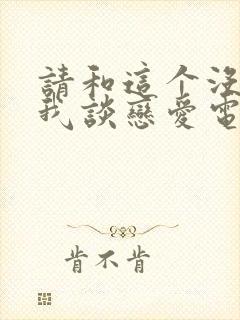 請和這个没
我談戀愛電
肯不肯